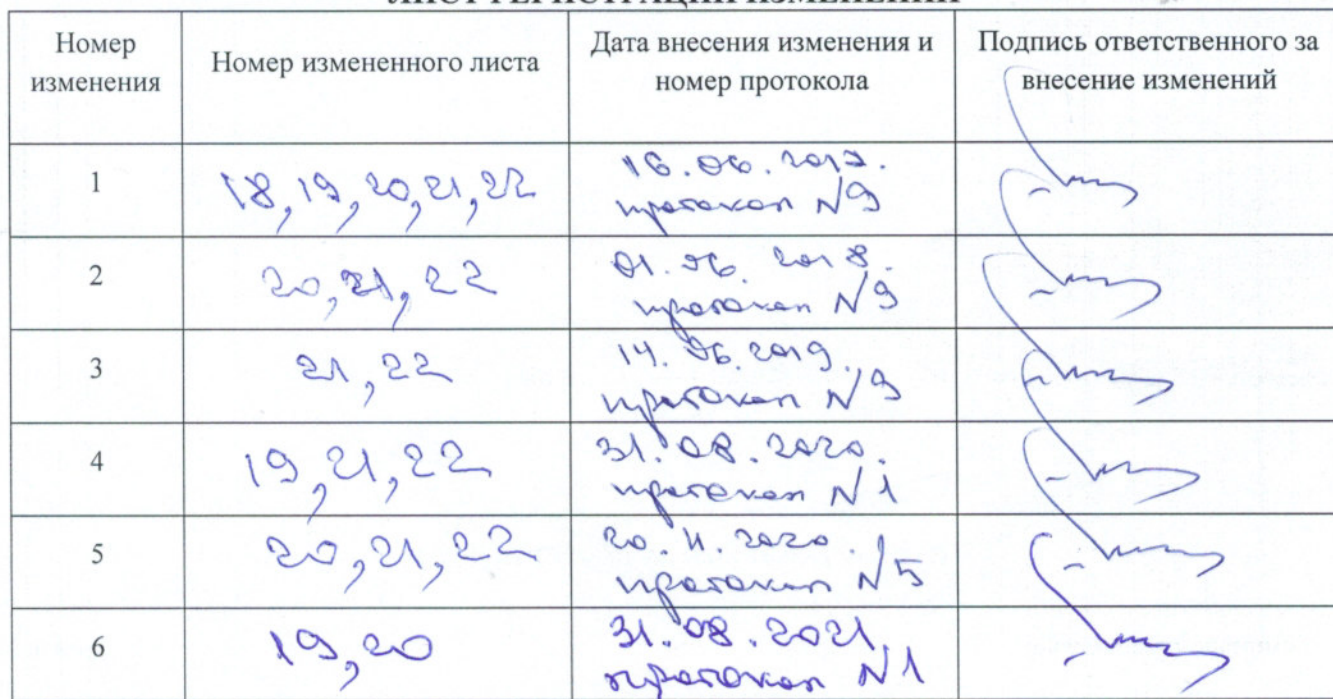 ЛИСТ РЕГИСТРАЦИИ ИЗМЕНЕНИЙ
Номер
изменения
Номер измененного листа
Дата внесения изменения и
номер протокола
Подпись ответственного за
внесение изменений
1
18, 19, 20, 21, 22
16.06.2017.
протокол №9
2
20, 21, 22
01.06.2018.
протокол №9
3
21, 22
14.06.2019.
протокол №9
4
19, 21, 22
31.08.2020.
протокол №1
5
20, 21, 22
20.11.2020.
протокол №5
6
19, 20
31.08.2021.
протокол №1